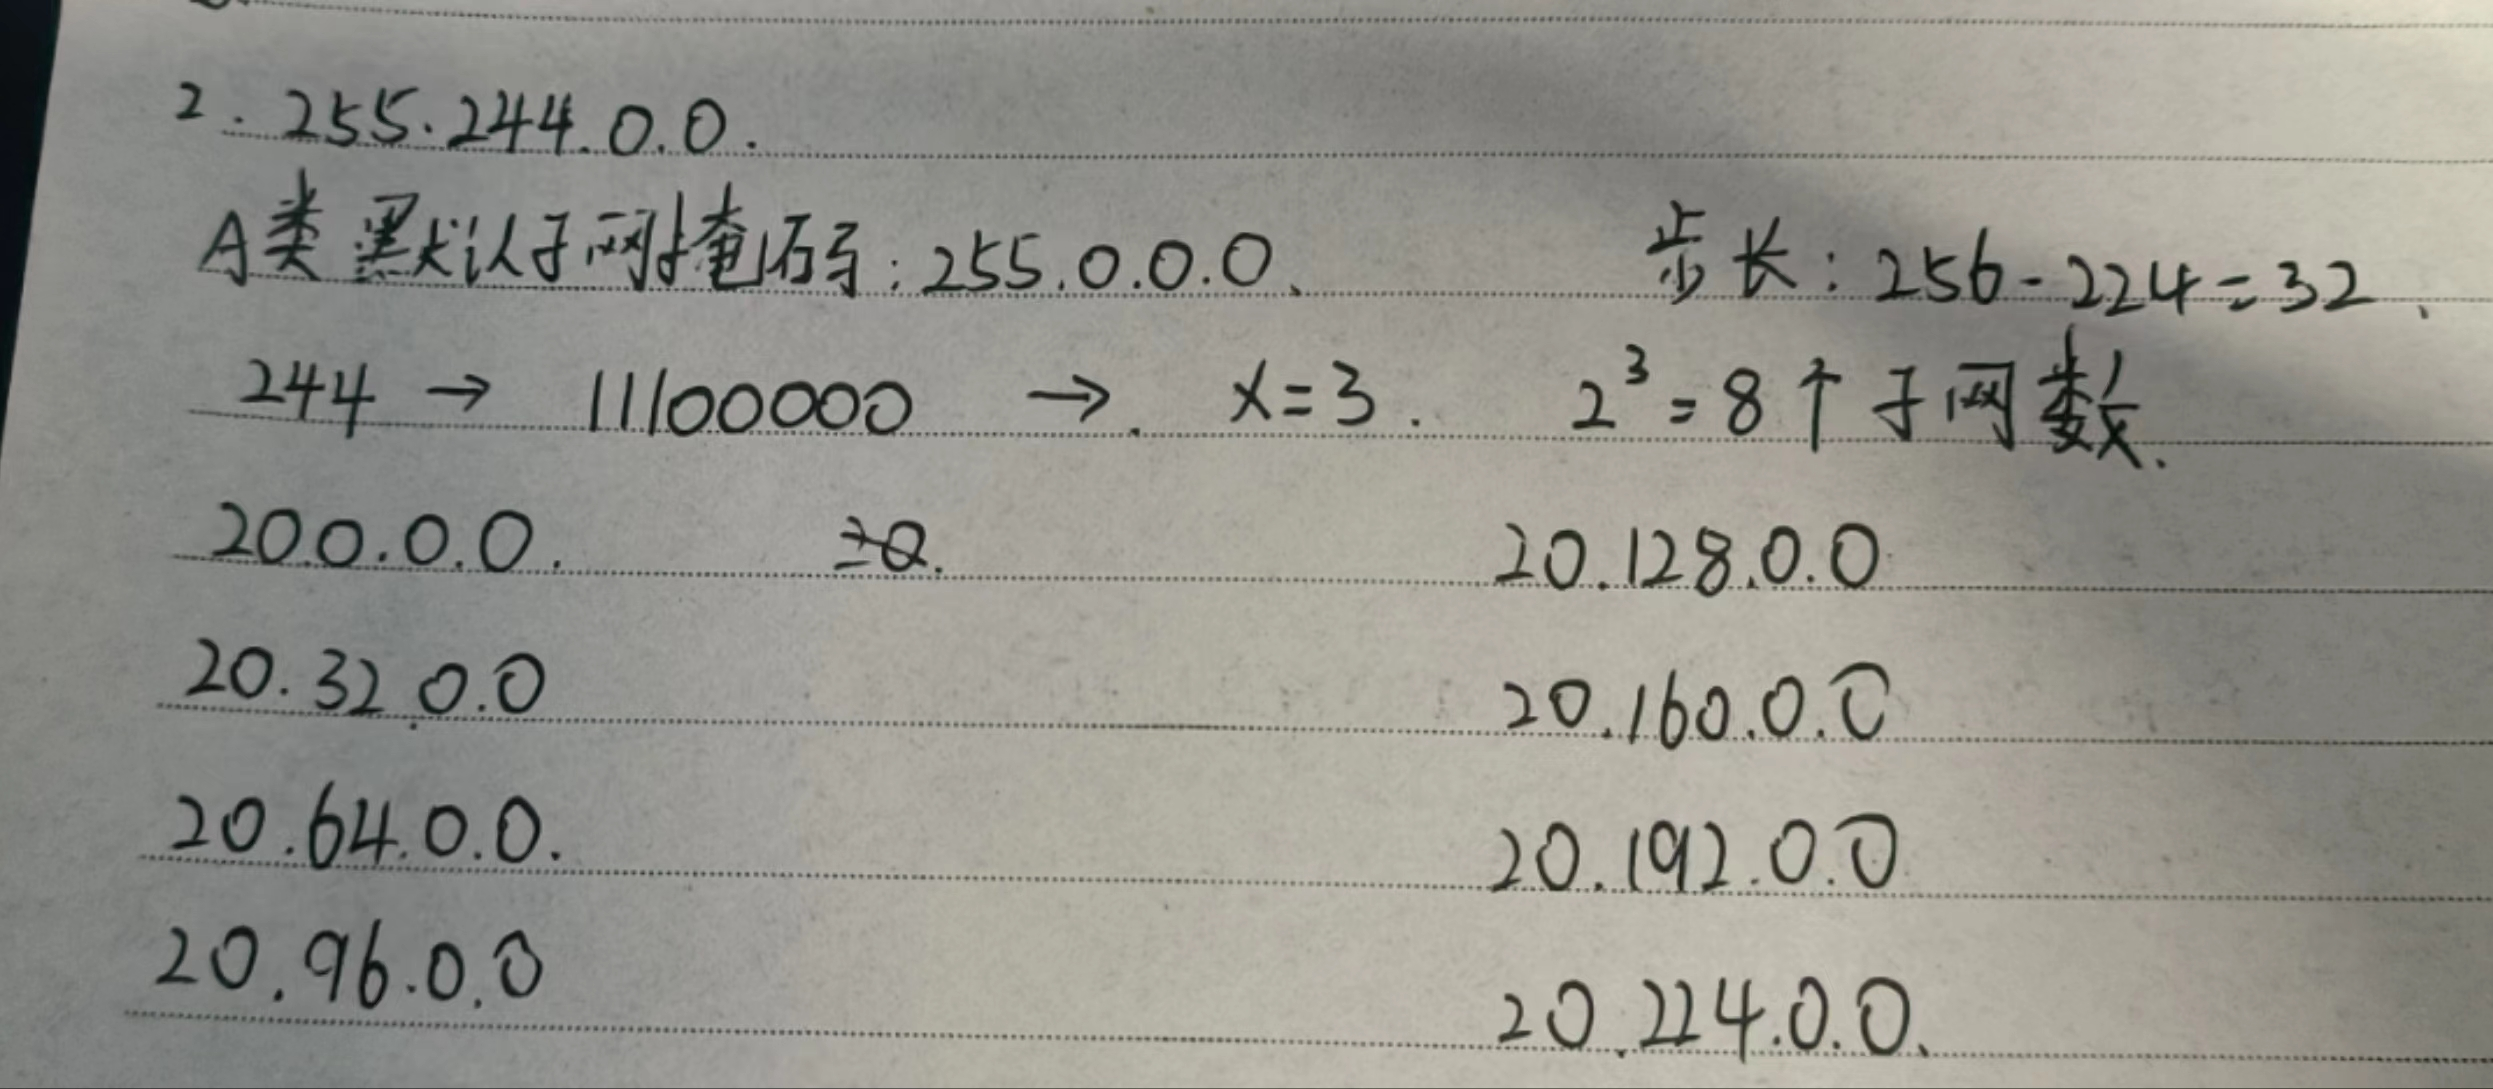 2. 255.244.0.0.
A类 默认子网掩码:255.0.0.0、 步长:256-224=32、
244 → 11100000 →. x=3. 2³=8个子网数.
20.0.0.0. 20.128.0.0
20.32.0.0 20.160.0.0
20.64.0.0. 20.192.0.0
20.96.0.0 20.224.0.0、